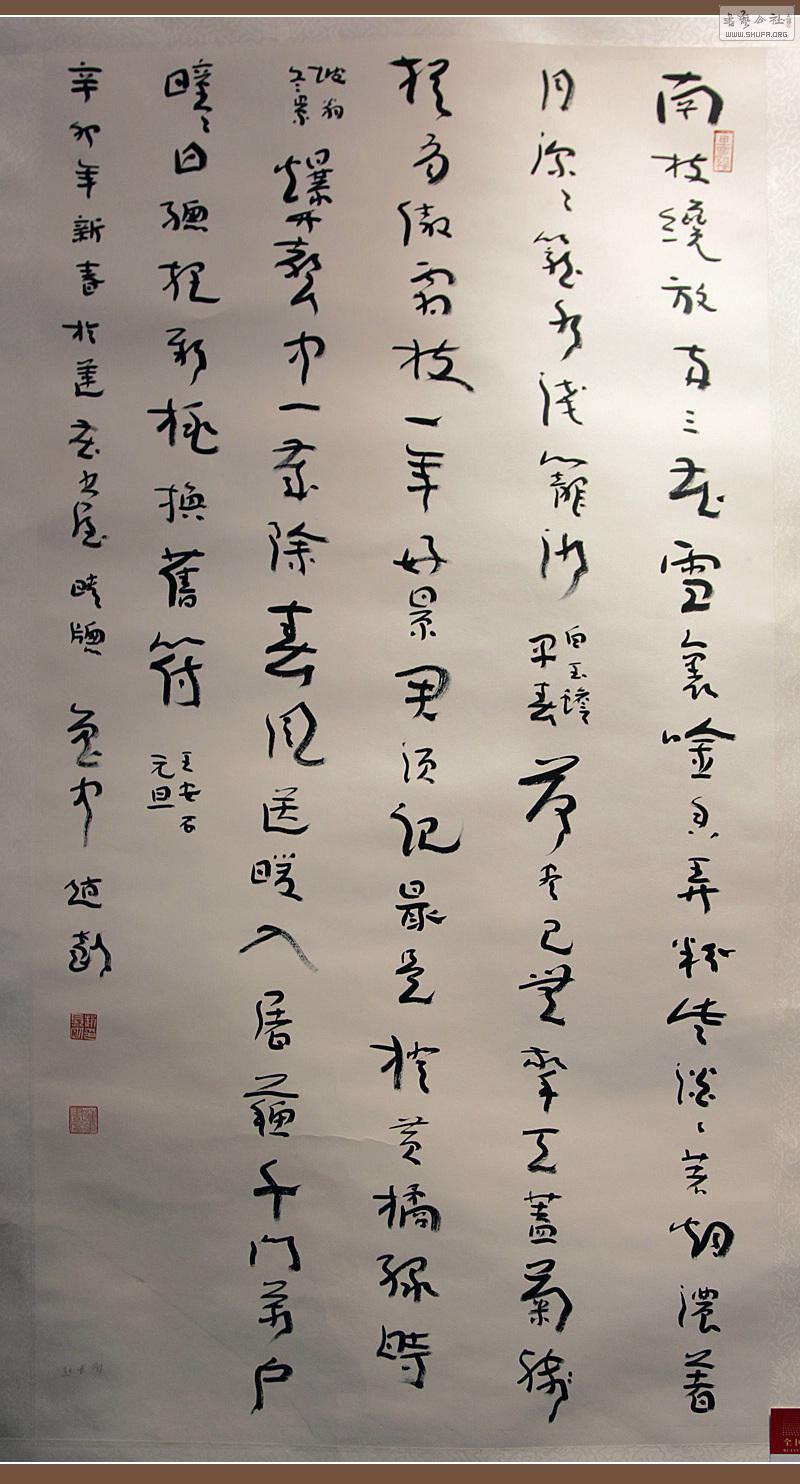 書藝公社
WWW.SHUFA.ORG
南枝繞放兩三花雪裏唫香弄粉些淡々著烟濃著
月深々籠水淺籠沙
白玉蟾
早春
荷盡已無擎雨蓋菊殘
猶有傲霜枝一年好景君須記最是橙黃橘綠時
坡翁
冬景
爆竹聲中一歲除春風送暖入屠蘇千門萬戶
曈々日總把新桃換舊符
王安石
元旦
辛卯年新春於蓮花書屋晴牕